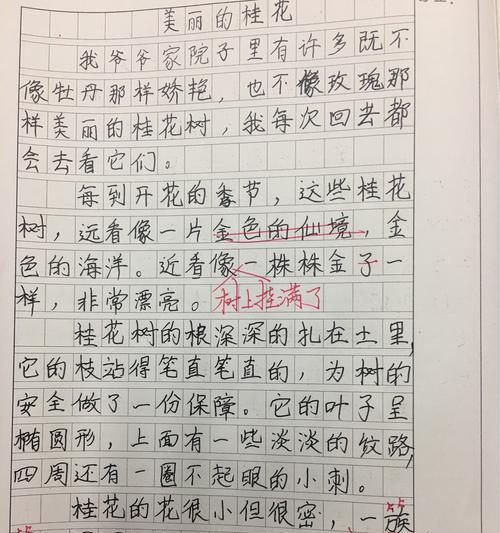 美丽的桂花
我爷爷家院子里有许多既不
像牡丹那样娇艳，也不像玫瑰那
样美丽的桂花树，我每次回去都
会去看它们。
每到开花的季节，这些桂花
树，远看像一片金色的仙境，金
色的海洋。近看像一株株金子一
样，非常漂亮。树上挂满了
桂花树的根深深的扎在土里，
它的枝站得笔直笔直的，为树的
安全做了一份保障。它的叶子呈
椭圆形，上面有一些淡淡的纹路，
四周还有一圈不起眼的小刺。
桂花的花很小但很密，一簇